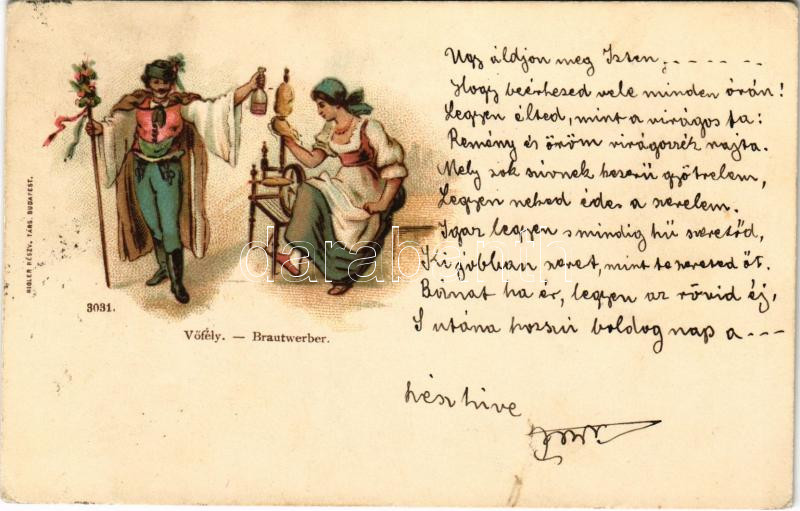 Ugy áldjon meg Isten, - - - - - - -
Hogy beérhesed vele minden órán!
Legyen élted, mint a virágos fa:
Remény és öröm virágozzék rajta.
Mely sok szivnek keserű gyötrelem,
Legyen neked édes a szerelem.
Igaz legyen s mindig hű szeretőd,
Ki jobban szeret, mint te szereted őt.
Bánat ha ér, legyen az rövid éj,
S utána hosszú boldog nap a - - -
kész hive
RIGLER RÉSZV. TÁRS. BUDAPEST.
3031.
Vőfély. — Brautwerber.
darabanth